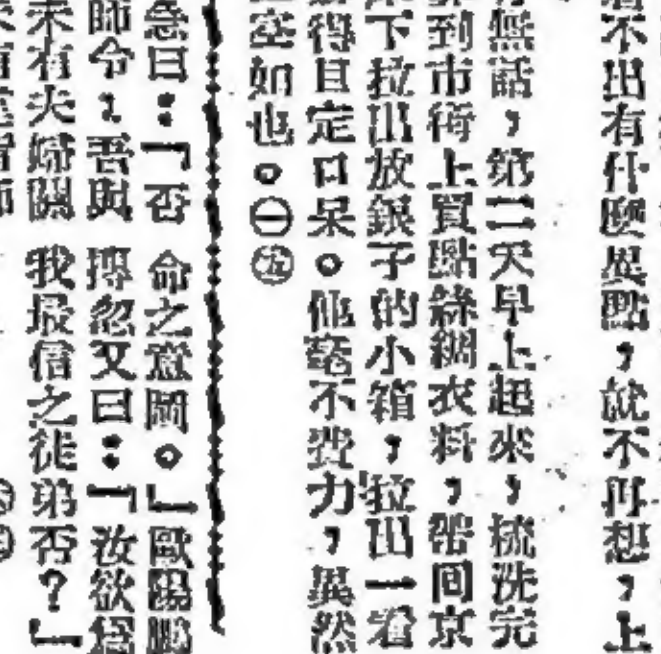 看不出有什麼異點,就不再想,上
無話,第二天早上起來,梳洗完
到市街上買點綠綢衣料,帶回京
下拉出放銀子的小箱,拉出一看
得目定口呆。他毫不費力,異然
空如也。㊀㊄
急曰:「否 命之意圖。」歐陽鵬
師令,吾與 摶忽又曰:「汝欲爲
未有夫婦關 我最信之徒弟否?」